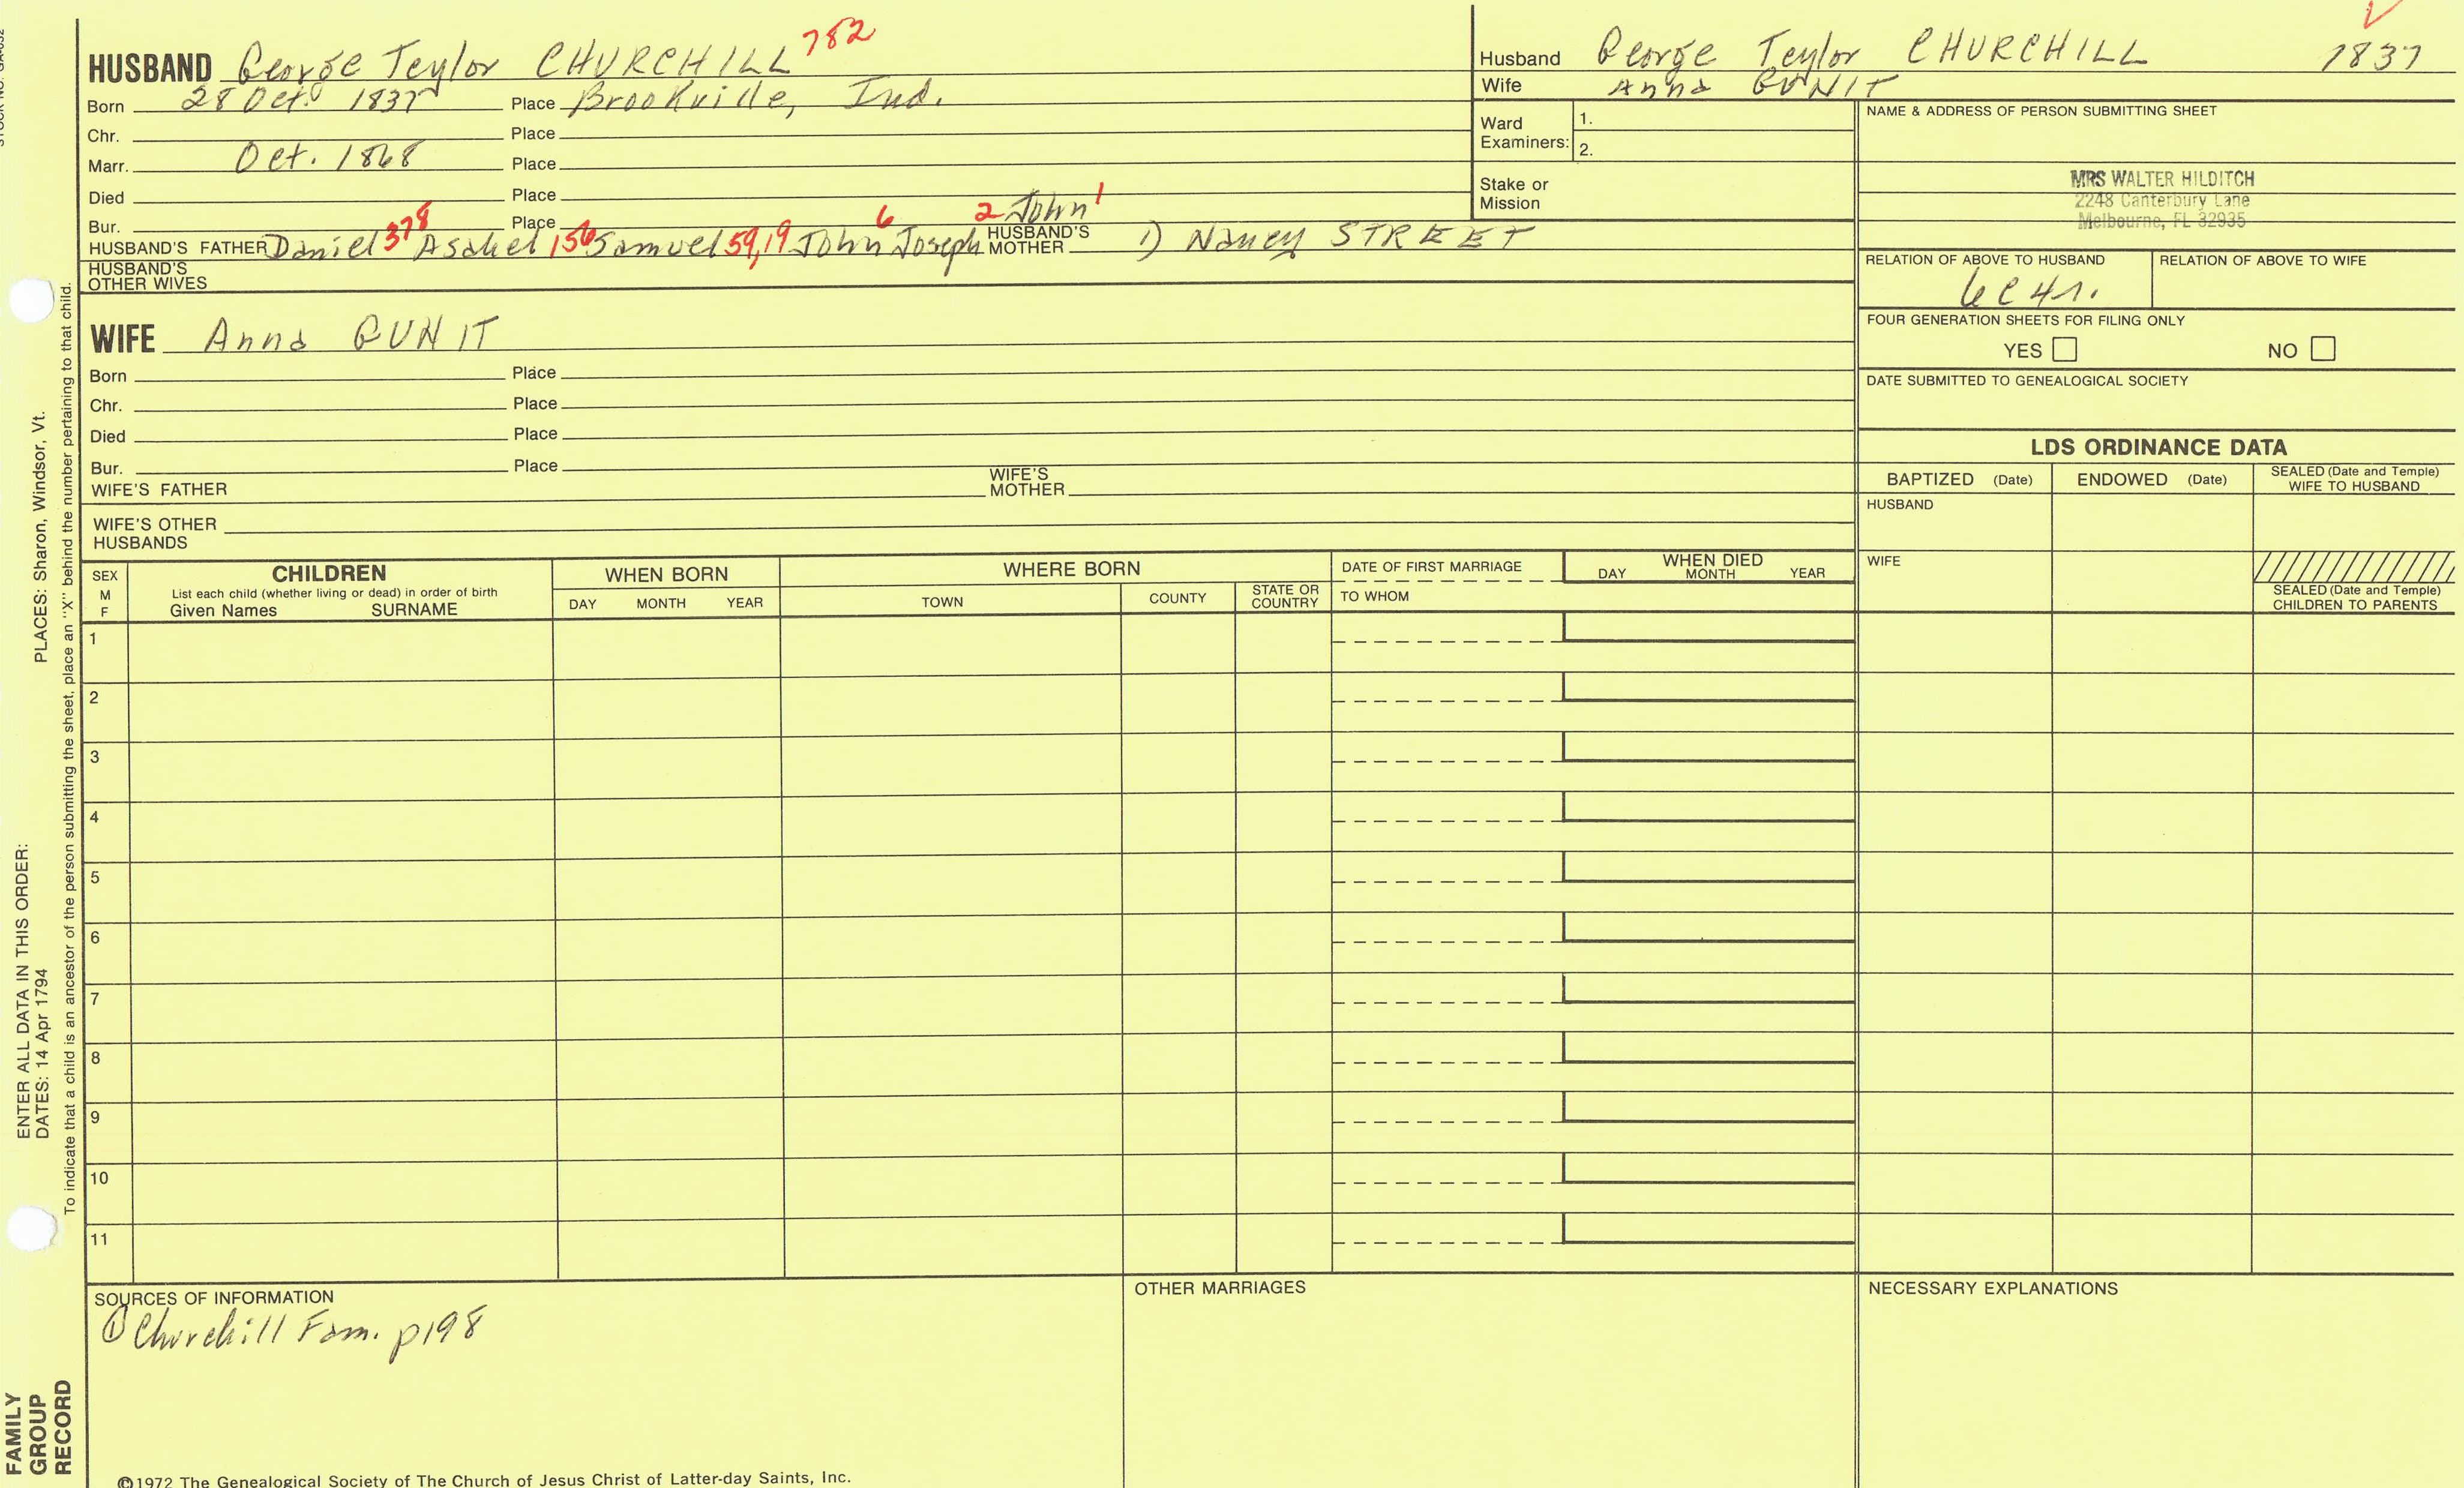 HUSBAND George Teylor CHURCHILL 782
Born 28 Oct. 1837 Place Brookville, Ind.
Chr. Place
Marr. Oct. 1868 Place
Died Place
Bur. Place
HUSBAND'S FATHER Daniel 378 Asahel 156 Samuel 59,19 John 6 Joseph 2 John 1 HUSBAND'S MOTHER 1) Nancy STREET
HUSBAND'S OTHER WIVES
WIFE Anna GUNIT
Born Place
Chr. Place
Died Place
Bur. Place
WIFE'S FATHER WIFE'S MOTHER
WIFE'S OTHER HUSBANDS
Husband George Teylor CHURCHILL 1837
Wife Anna GUNIT
Ward Examiners: 1.
2.
Stake or Mission
NAME & ADDRESS OF PERSON SUBMITTING SHEET
MRS WALTER HILDITCH
2248 Canterbury Lane
Melbourne, FL 32935
RELATION OF ABOVE TO HUSBAND RELATION OF ABOVE TO WIFE
6C4r.
FOUR GENERATION SHEETS FOR FILING ONLY
YES NO
DATE SUBMITTED TO GENEALOGICAL SOCIETY
LDS ORDINANCE DATA
BAPTIZED (Date) ENDOWED (Date) SEALED (Date and Temple) WIFE TO HUSBAND
HUSBAND
WIFE
SEALED (Date and Temple) CHILDREN TO PARENTS
SEX M F CHILDREN WHEN BORN WHERE BORN DATE OF FIRST MARRIAGE WHEN DIED
List each child (whether living or dead) in order of birth
Given Names SURNAME DAY MONTH YEAR TOWN COUNTY STATE OR COUNTRY TO WHOM DAY MONTH YEAR
1
2
3
4
5
6
7
8
9
10
11
SOURCES OF INFORMATION OTHER MARRIAGES NECESSARY EXPLANATIONS
① Churchill Fam. p198
©1972 The Genealogical Society of The Church of Jesus Christ of Latter-day Saints, Inc.
FAMILY GROUP RECORD
ENTER ALL DATA IN THIS ORDER:
DATES: 14 Apr 1794 PLACES: Sharon, Windsor, Vt.
To indicate that a child is an ancestor of the person submitting the sheet, place an "X" behind the number pertaining to that child.